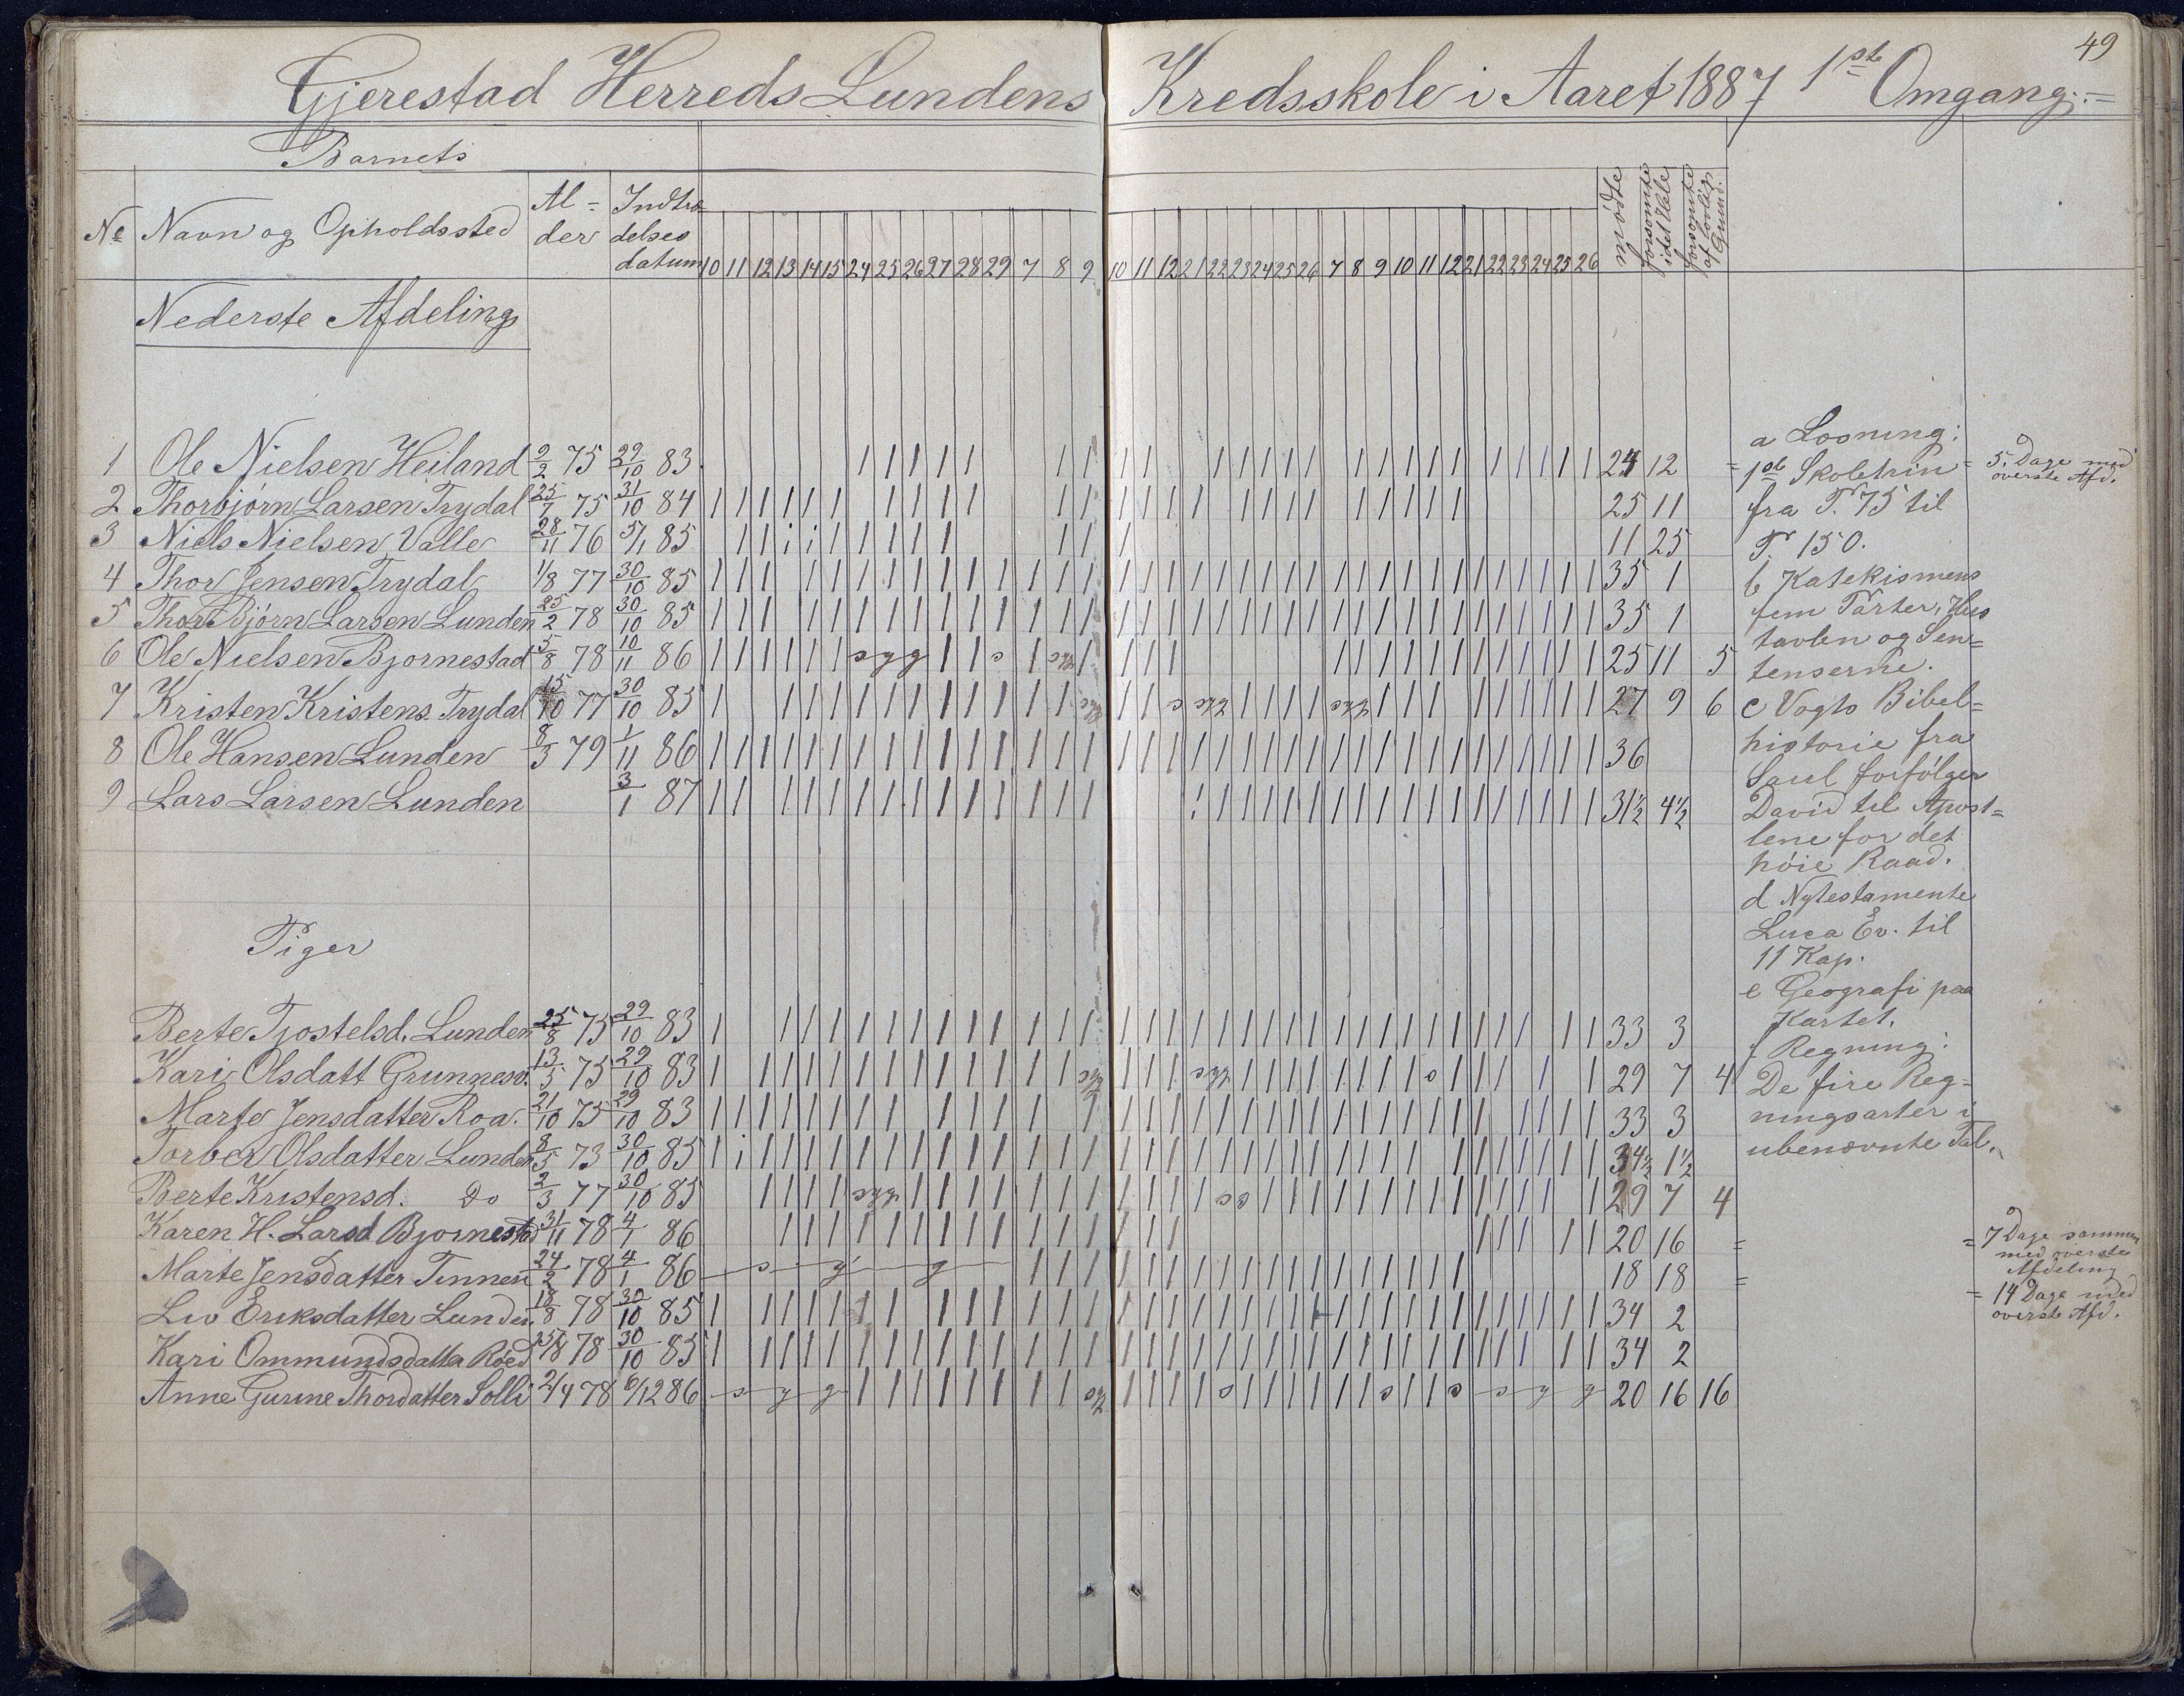 49
Gjerestad Herreds Lundens Kredsskole i Aaret 1887 1ste Omgang.
Barnets
No Navn og Opholdssted Al-der Indtrædelses datum 10 11 12 13 14 15 24 25 26 27 28 29 7 8 9 10 11 12 21 22 23 24 25 26 7 8 9 10 11 12 21 22 23 24 25 26 mødte forsømte i det Hele forsømte af lovlig Grund.
Nederste Afdeling
1 Ole Nielsen Heiland 2/2 75 29/10 83 24 12
2 Thorbjørn Larsen Trydal 25/7 75 31/10 84 25 11
3 Niels Nielsen Valle 28/11 76 5/1 85 11 25
4 Thor Jensen Trydal 1/8 77 30/10 85 35 1
5 Thor Bjørn Larsen Lunden 25/2 78 30/10 85 35 1
6 Ole Nielsen Bjornestad 5/8 78 10/11 86 syg s syg 25 11 5
7 Kristen Kristens. Trydal 15/10 77 30/10 85 syg s syg syg 27 9 6
8 Ole Hansen Lunden 8/3 79 1/11 86 36
9 Lars Larsen Lunden 3/1 87 31½ 4½
Piger
Berte Tjostelsd. Lunden 25/8 75 29/10 83 33 3
Kari Olsdatt Grunnesv. 13/5 75 29/10 83 syg syg s 29 7 4
Marte Jensdatter Roa. 21/10 75 29/10 83 33 3
Torber Olsdatter Lunden 8/5 73 30/10 85 34½ 1½
Berte Kristensd. Do 2/3 77 30/10 85 syg 29 7 4
Karen H. Larsd Bjornestad 31/11 78 4/1 86 20 16 =
Marte Jensdatter Tinnen 24/2 78 4/1 86 s y g 18 18 =
Liv Eriksdatter Lunden. 18/8 78 30/10 85 34 2
Kari Ommundsdatter Röed 25/8 78 30/10 85 34 2
Anne Gurine Thordatter Solli 2/4 78 6/12 86 s y g syg s s s s y g 20 16 16
a Læsning:
1ste Skoletrin
fra P. 75 til
P. 150.
b Katekismens
fem Parter, Hus
tavlen og Sen=
tenserne.
c Vogts Bibel=
historie fra
Saul forfølger
David til Apost=
lene for det
høie Raad.
d Nytestamente
Luca Ev. til
11 Kap.
e Geografi paa
Kartet.
f Regning:
De fire Reg=
ningsarter i
ubenævnte Tal.
= 5. Dage med
øverste Afd.
= 7 Dage sammen
med øverste
Afdeling
= 14 Dage med
øverste Afd.